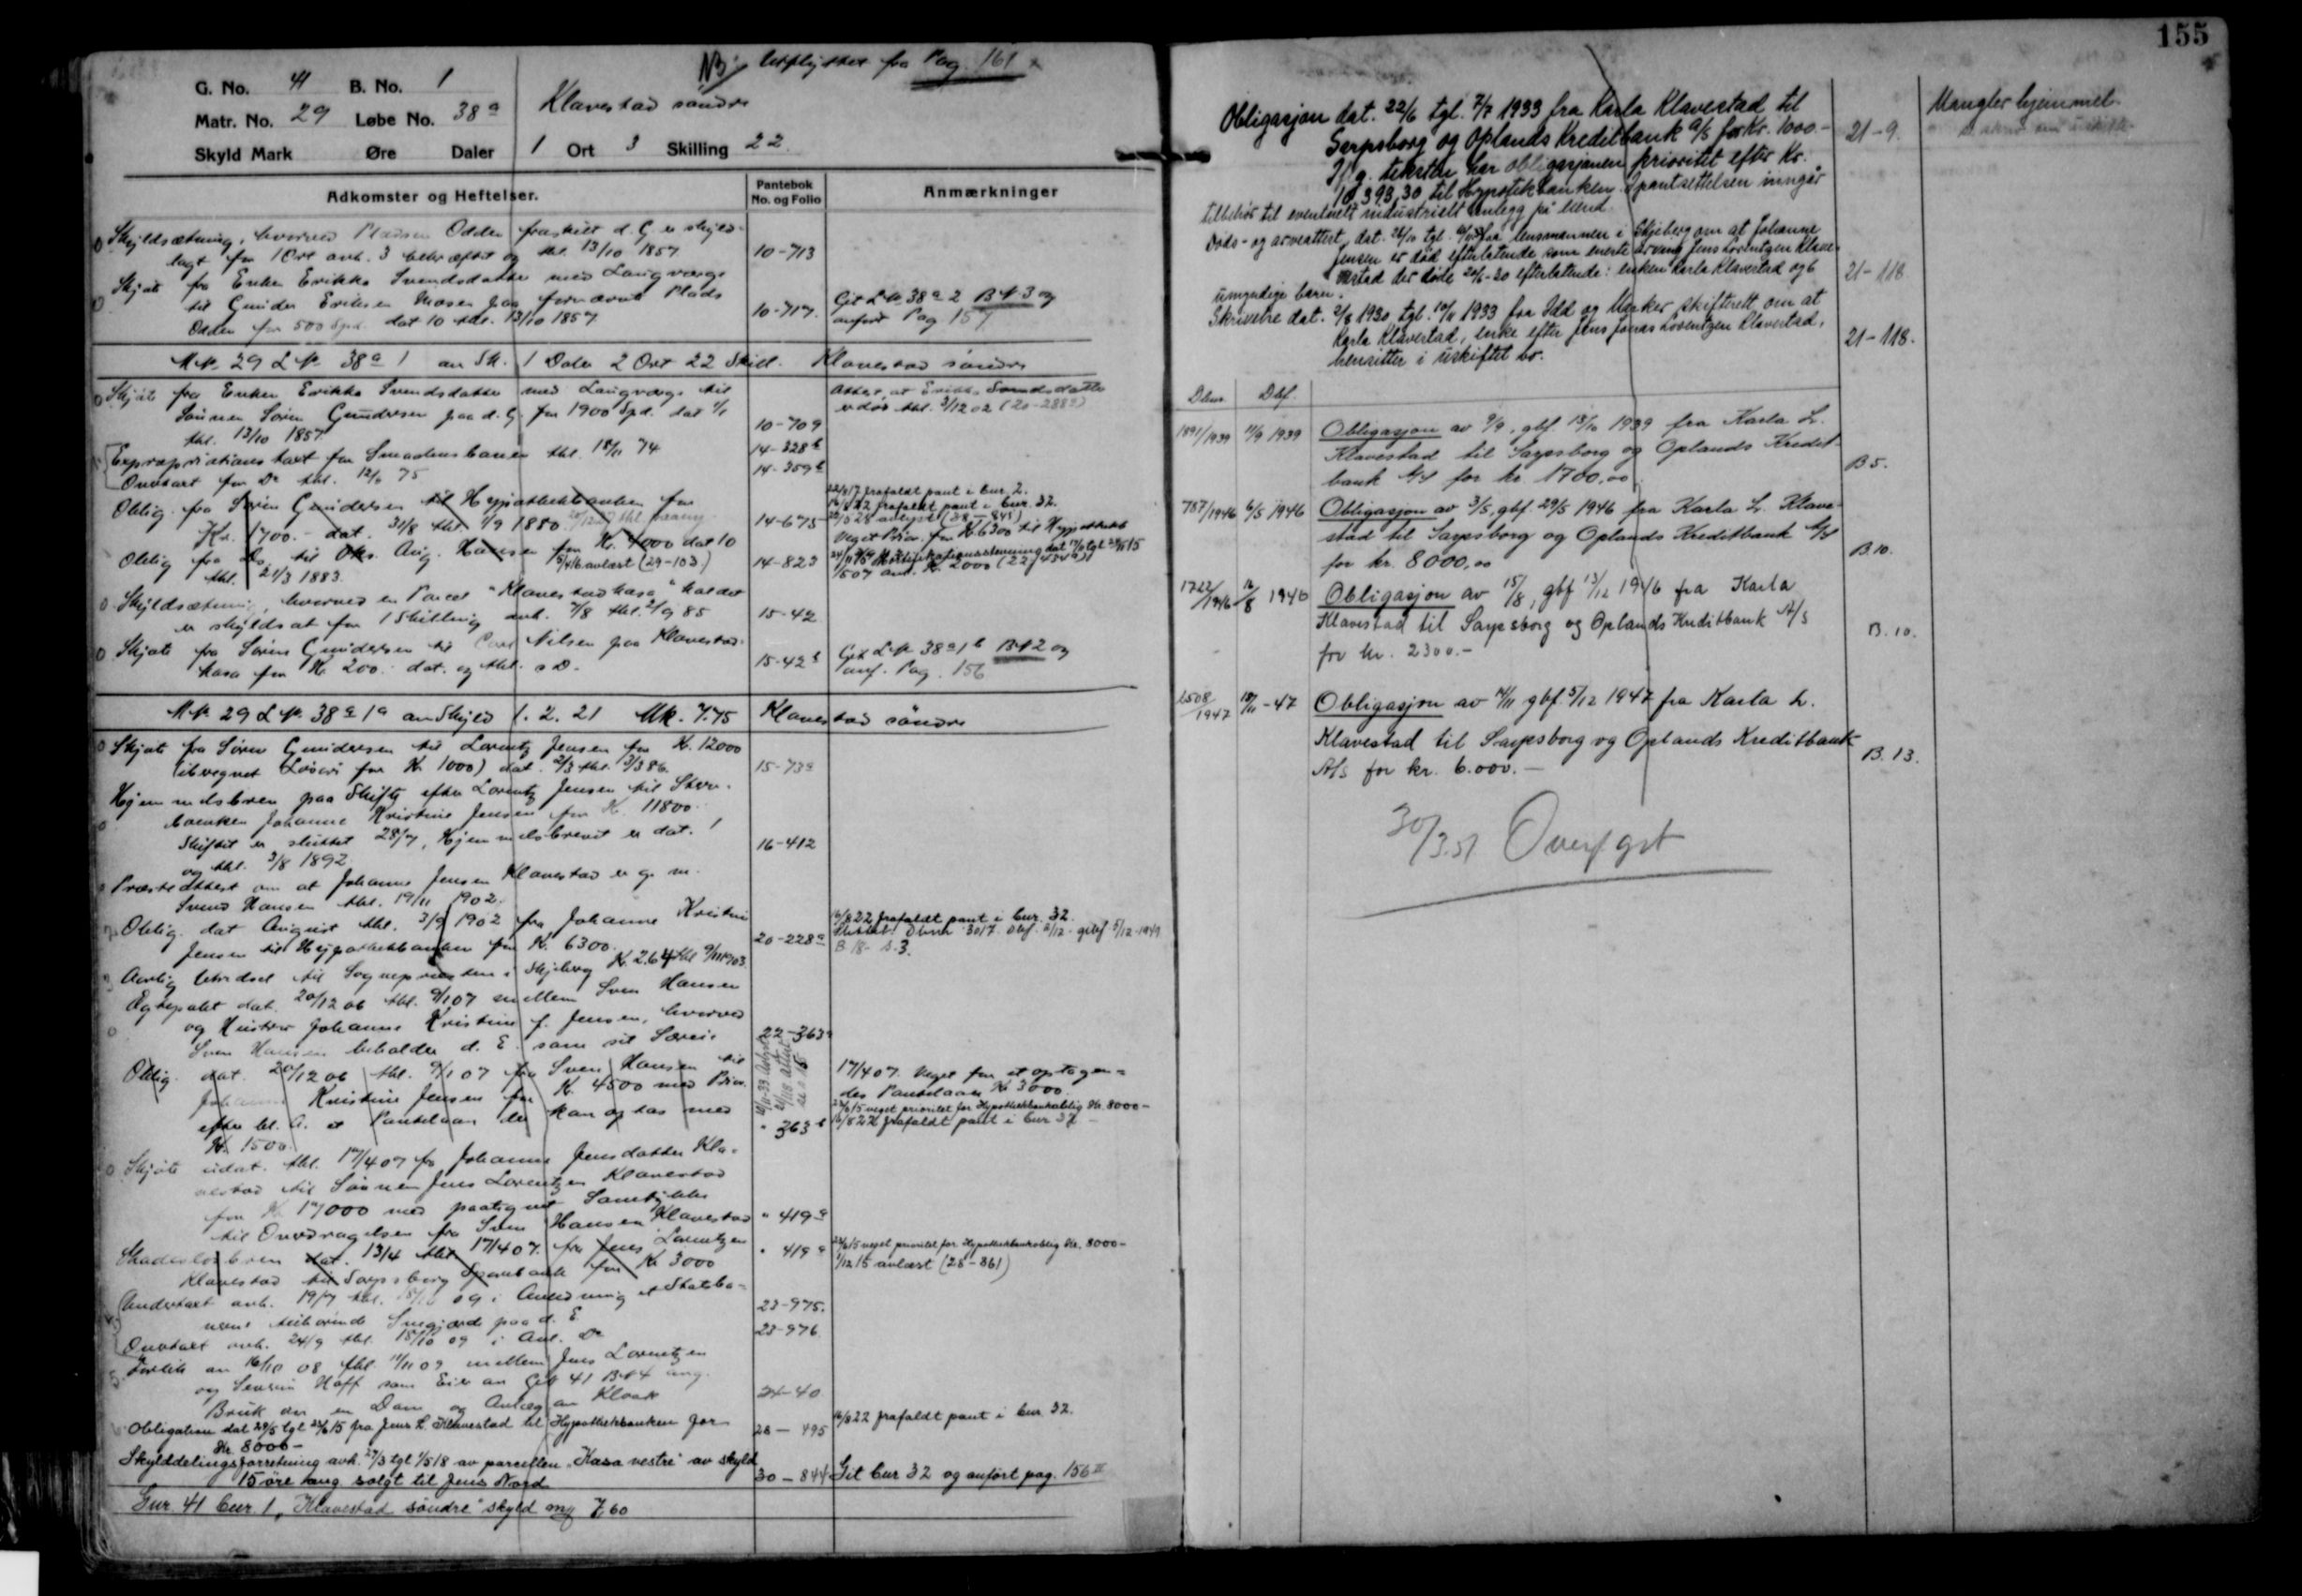 NB. Utflyttet fra Pag. 161
G. No. 41 B. No. 1
Matr. No. 29 Løbe No. 38ª Klavestad söndre
Skyld Mark Øre Daler 1 Ort 3 Skilling 22
Adkomster og Heftelser. Pantebok No. og Folio Anmærkninger
Skyldsætning, hvorved Pladsen Odden fraskilt d. G. er skyld-
lagt for 1 Ort avh. 3 bekræftet og thl. 13/10 1857 10-713
Skjøte fra Enken Erikka Svendsdatter med Laugværge
til Gunder Eriksen Mosen paa fornævnt Plads
Odden for 500 Spd. dat 10 thl. 13/10 1857 10-717. Git L.No. 38ª 2 BN 3 og
anført Pag 157
M.No. 29 L.No. 38ª 1 av Sk. 1 Daler 2 Ort 22 Skill. Klavestad söndre
Skjøte fra Enken Erikka Svendsdatter med Laugværge til
Sønnen Søren Gundersen paa d. G. for 1900 Spd. dat
thl. 13/10 1857 10-709
Attest, at Erikka Svendsdatter
er død thl. 3/12 02 (20-288ª)
Expropriationstaxt for Smaalensbanen thl. 18/11 74 14-328ᵇ
Overtaxt for Do thl. 12/6 75 14-359ᵇ
Oblig. fra Søren Gundersen til Hypothekbanken for
Kr. 1700.- dat. 31/8 thl. 1/9 1880 14-675
22/5 17 frafaldt pant i bnr. 2.
16/8 22 frafaldt pant i bnr. 32.
Veget Prior. for K. 6300 til Hypothekb
Oblig. fra Do til O.Ks. Aug. Hansen for K. 4000 dat 10
thl. 21/3 1883. 5/4 16 avlæst (29-103.) 14-823
Skyldsætning, hvorved en Parcel "Klavestadkasa" kaldet
er skyldsat for 1 Skilling avh. 7/8 thl. 2/9 85 15-42
Skjøte fra Søren Gundersen til Carl Nilsen paa Klavestad-
kasa for K. 200.- dat. og thl. s D. 15-42ᵇ Git L.No. 38ª1ᵇ BN 2 og
anf. Pag. 156
M.No. 29 L.No. 38ª 1ª av Skyld 1. 2. 21 Mk. 7.75 Klavestad söndre
Skjøte fra Søren Gundersen til Lorentz Jensen for K. 12000
(iberegnet Løsøre for K. 1000) dat. 2/3 thl. 3/3 86. 15-73ª
Hjemmelsbrev paa Skifte efter Lorentz Jensen til Stev-
boenken Johanne Kristine Jensen for K. 11800.
Skiftet er sluttet 28/7, Hjemmelsbrevet er dat. 1
og thl. 3/8 1892 16-412
Præsteattest om at Johanne Jensen Klavestad er g. m.
Svend Hansen thl. 19/11 1902.
Oblig. dat August thl. 3/9 1902 fra Johanne Kristine
Jensen til Hypothekbanken for K. 6300. 20-228ª
16/8 22 frafaldt pant i bnr. 32.
Slettet! Dbnr 3017. Dbf. 2/12. gbf. 5/12-1949
B 18- s. 3.
Aarlig Utredsel til Sognepresten i Skjeberg K. 2.64 thl 9/11 1903
Ægtepakt dat. 20/12 06 thl. 9/1 07 mellem Sven Hansen
og Hustru Johanne Kristine f. Jensen, hvorved
Sven Hansen beholder d. E. som sit Særeie 22-363ª
Oblig. dat. 20/12 06 thl. 9/1 07 fra Sven Hansen til
Johanne Kristine Jensen for K. 4500 med Prior.
efter bl. A. et Pantelaan der kan optas med
K. 1500. " 363ᵇ
17/4 07. Veget for et optagen-
des Pantelaan K. 3000.
23/6 15 veget prioritet for Hypothekbankoblig Kr. 8000-
16/8 22 frafaldt pant i bnr 32 -
Skjøte udat. thl. 17/4 07 fra Johanne Jensdatter Kla-
vestad til Sønnen Jens Lorentzen Klavestad
for K. 17000 med paategnet Samtykke
til Overdragelsen fra Sven Hansen Klavestad " 419ª
Skadesløsbrev dat. 13/4 thl 17/4 07. fra Jens Lorentzen
Klavestad til Sarpsborg Sparebank for K. 3000 " 419ª
23/6 15 veget prioritet for Hypothekbankoblig Kr. 8000-
1/12 15 avlæst (28-361)
Undertaxt avh. 19/7 thl. 18/10 09 i Anledning af Statsba-
nerne tilhørende Snegjærde paa d. E 23-975.
Overtaxt avh. 24/9 thl. 18/10 09 i Anl. Do 23-976
Forlik av 16/10 08 thl. 11/11 09 mellem Jens Lorentzen
og Severin Hoff som Eier av GN 41 BN 4 ang.
Bruk av en Dam og Anlæg av Kloak 24-40
Obligation dat 29/5 tgl 23/6 15 fra Jens L. Klavestad til Hypothekbanken for
Kr 8000- 28-495 16/8 22 frafaldt pant i bnr. 32.
Skylddelingsforretning avh. 27/3 tgl 1/5 18 av parcellen "Kasa vestre" av skyld
15 øre ang. solgt til Jens Nord. 30-844 Git bnr 32 og anført pag. 156 II
Gnr. 41 bnr. 1 "Klavestad söndre" skyld mrk 7,60
155
Obligasjon dat. 22/6 tgl. 7/7 1933 fra Karla Klavestad til
Sarpsborg og Oplands Kreditbank A/S for Kr. 1000.- 21-9. Mangler hjemmel.
If g. teksten har obligasjonen prioritet efter Kr.
10 393,30 til Hypotekbanken. I pantsettelsen inngår
tilbehör til eventuelt industrielt anlegg på eiend.
Døds- og arveattest dat. 24/10 tgl. fra lensmannen i Skjeberg om at Johanne
Jensen er död efterlatende som eneste arving Jens Lorentzen Klave-
stad der døde 20/6-30 efterlatende: enken Karla Klavestad og 6
umyndige barn. 21-118
Skrivelse dat. 2/8 1930 tgl. 10/11 1933 fra Idd og Marker skifterett om at
Karla Klavestad, enke efter Jens Jonas Lorentzen Klavestad,
hensitter i uskiftet bo. 21-118.
Dbnr. Dbf.
1891/1939 11/9 1939 Obligasjon av 9/9, gbf. 13/10 1939 fra Karla L.
Klavestad til Sarpsborg og Oplands Kredit-
bank A/S for kr. 1700,00 B 5.
787/1946 6/5 1946 Obligasjon av 3/5, gbf. 29/5 1946 fra Karla L. Klave-
stad til Sarpsborg og Oplands Kreditbank A/S
for kr. 8000,00 B. 10.
1722/1946 16/8 1946 Obligasjon av 15/8, gbf 13/12 1946 fra Karla
Klavestad til Sarpsborg og Oplands Kreditbank A/S
for kr. 2300.- B. 10.
2508/1947 18/11-47 Obligasjon av 14/11 gbf. 5/12 1947 fra Karla L.
Klavestad til Sarpsborg og Oplands Kreditbank
A/S for kr. 6.000.- B. 13.
30/3.51 Overfört